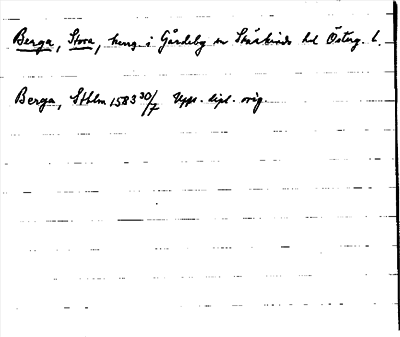 Berga, Stora, hmg. i Gårdeby sn Skärkinds hd Österg. l.
Berga, Sthlm 1583 30/7 Upps. dipl. orig.